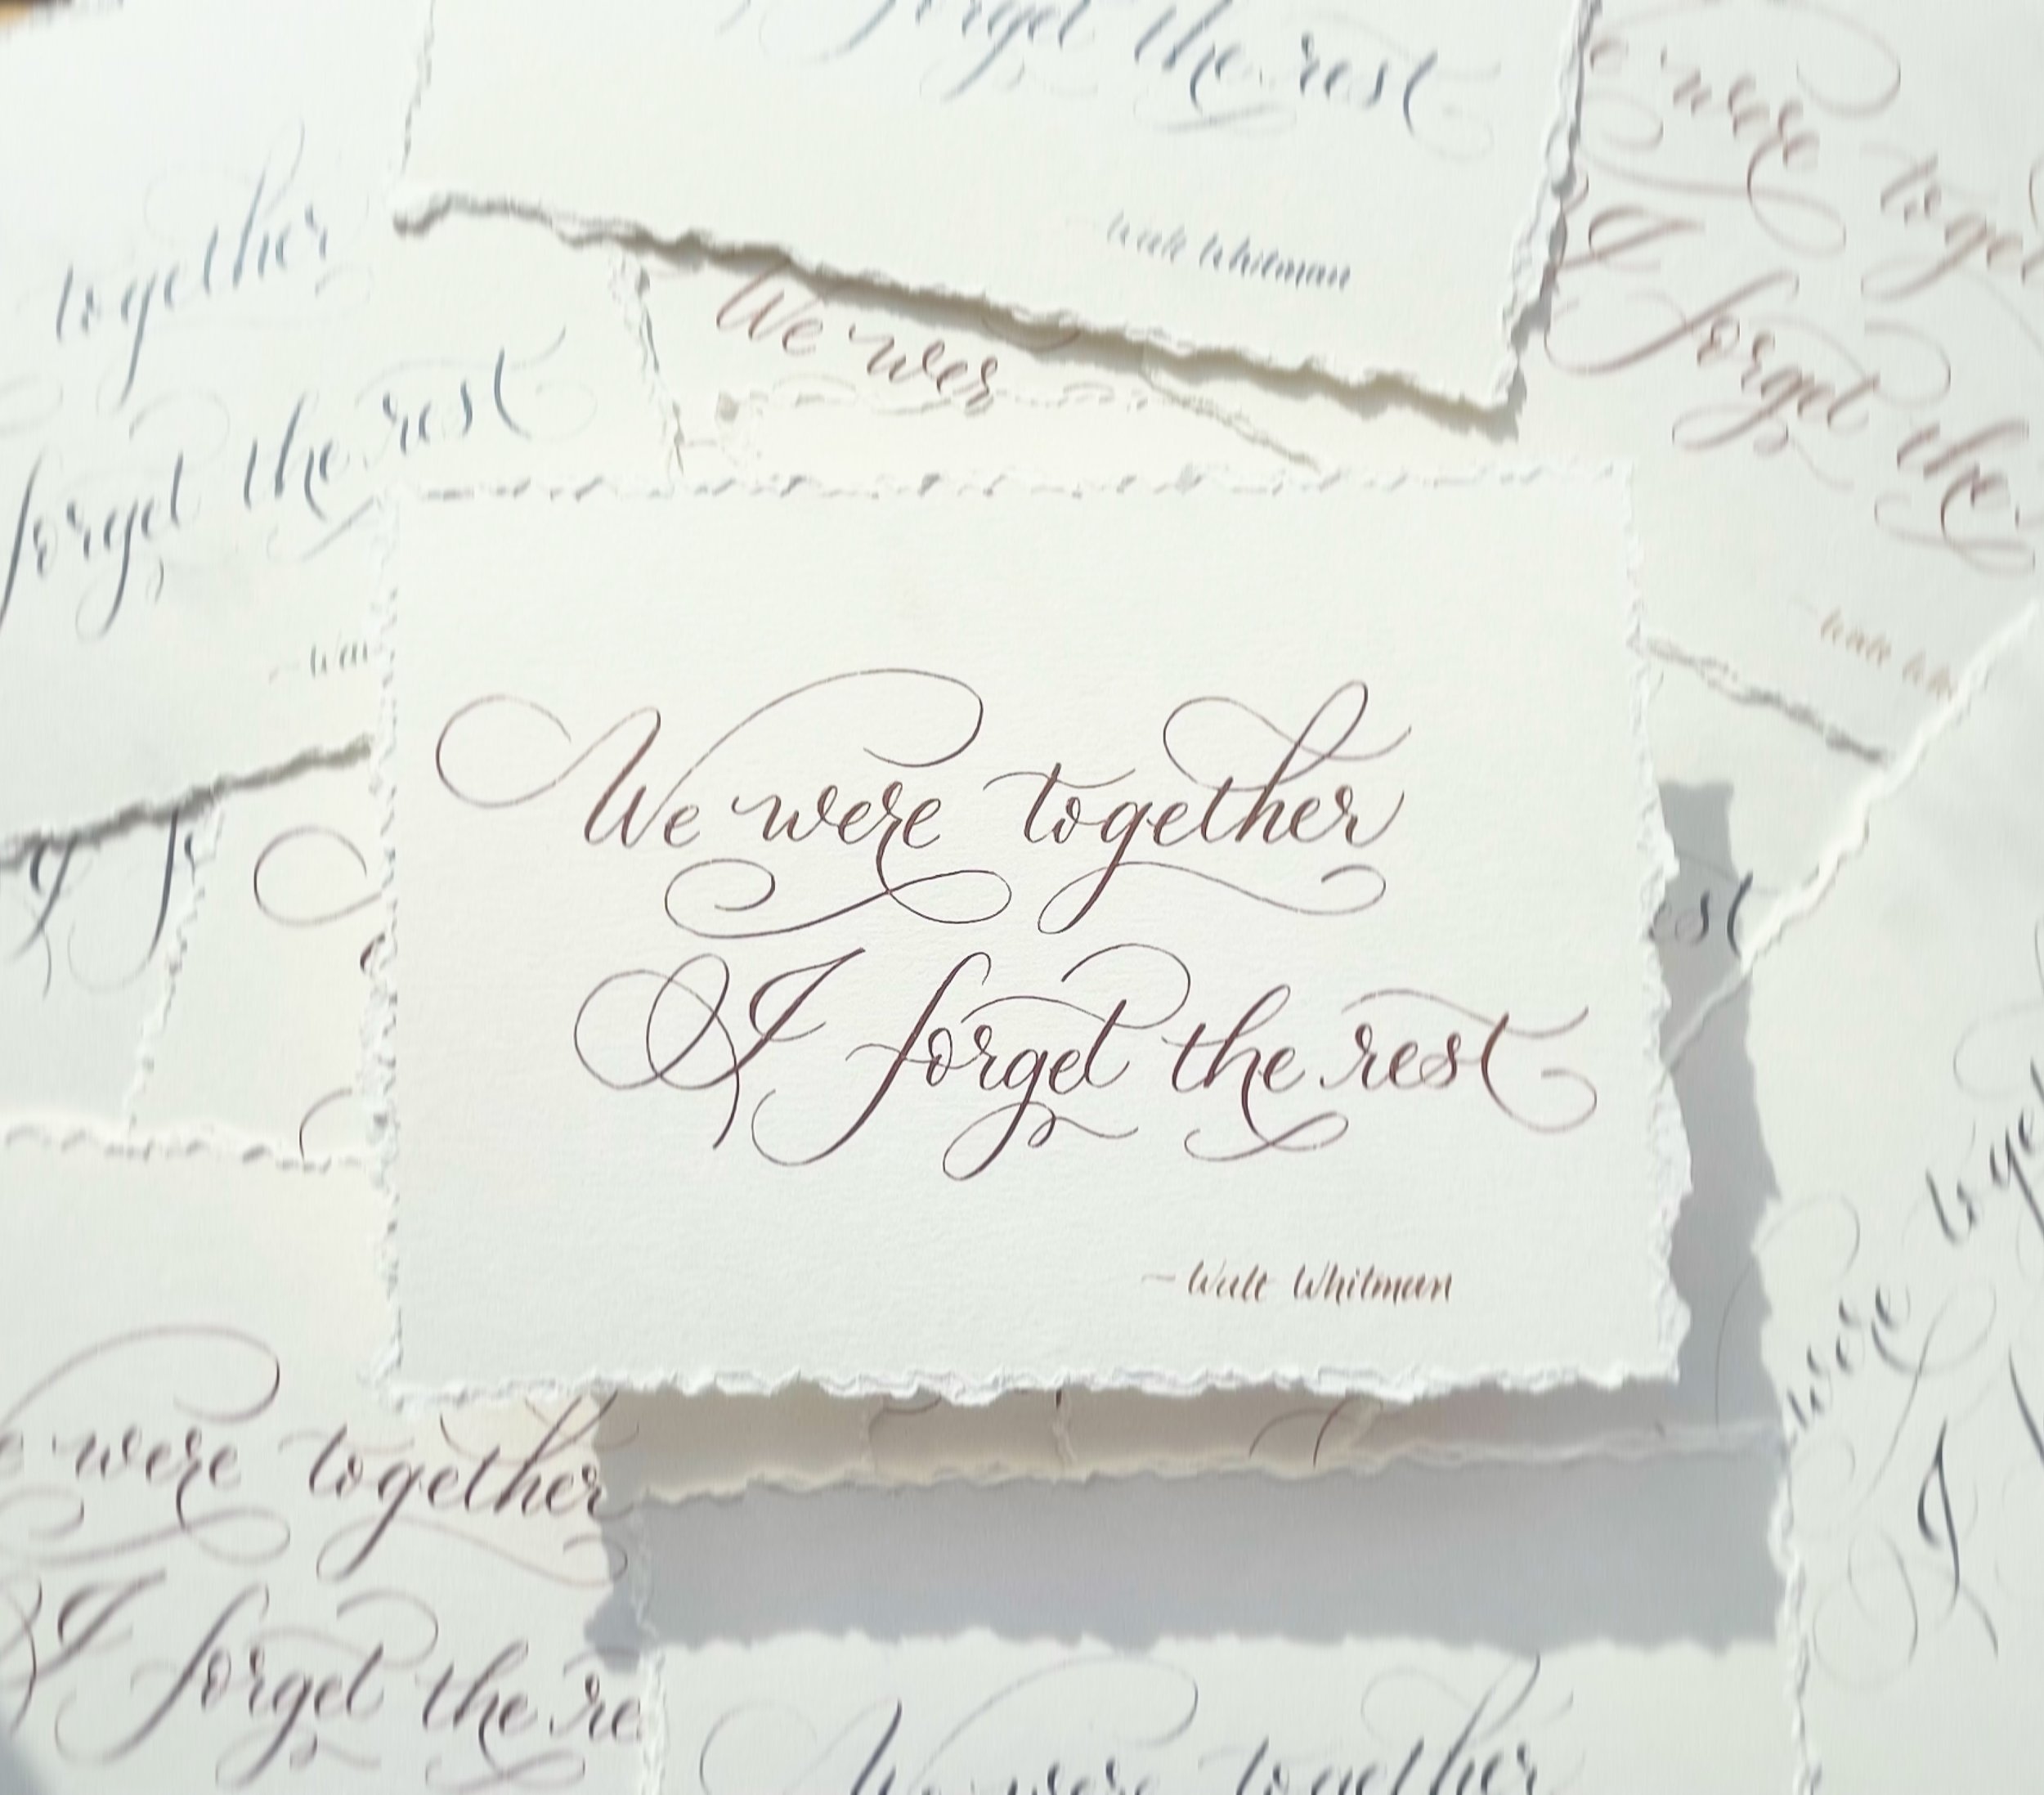 forget the rest
Walt Whitman
together
forget the rest
We were
e were
together
I forget the
Walt
We were together
I forget the rest
– Walt Whitman
I
were together
I forget the re
We were together
were
I